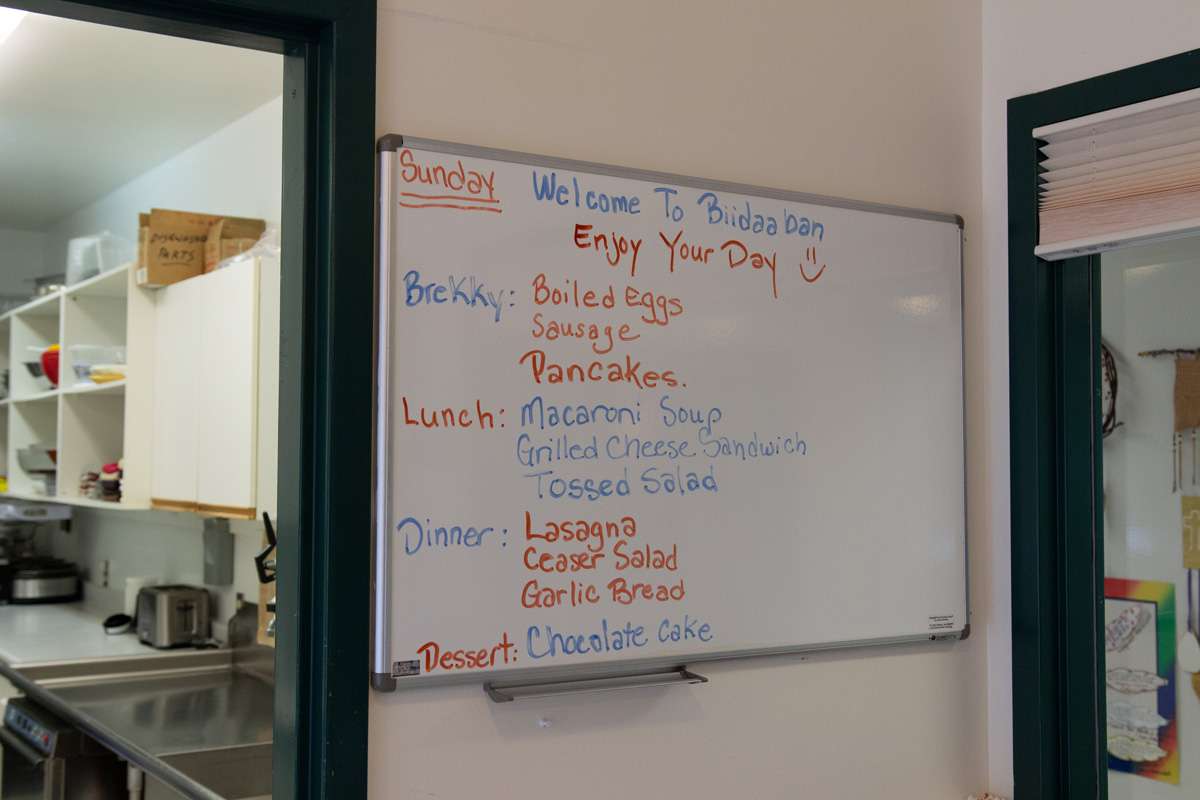 Sunday
Welcome To Biidaaban
Enjoy Your Day
Brekky: Boiled Eggs
Sausage
Pancakes.
Lunch: Macaroni Soup
Grilled Cheese Sandwich
Tossed Salad
Dinner: Lasagna
Ceaser Salad
Garlic Bread
Dessert: Chocolate Cake
DISHWASHER
PARTS